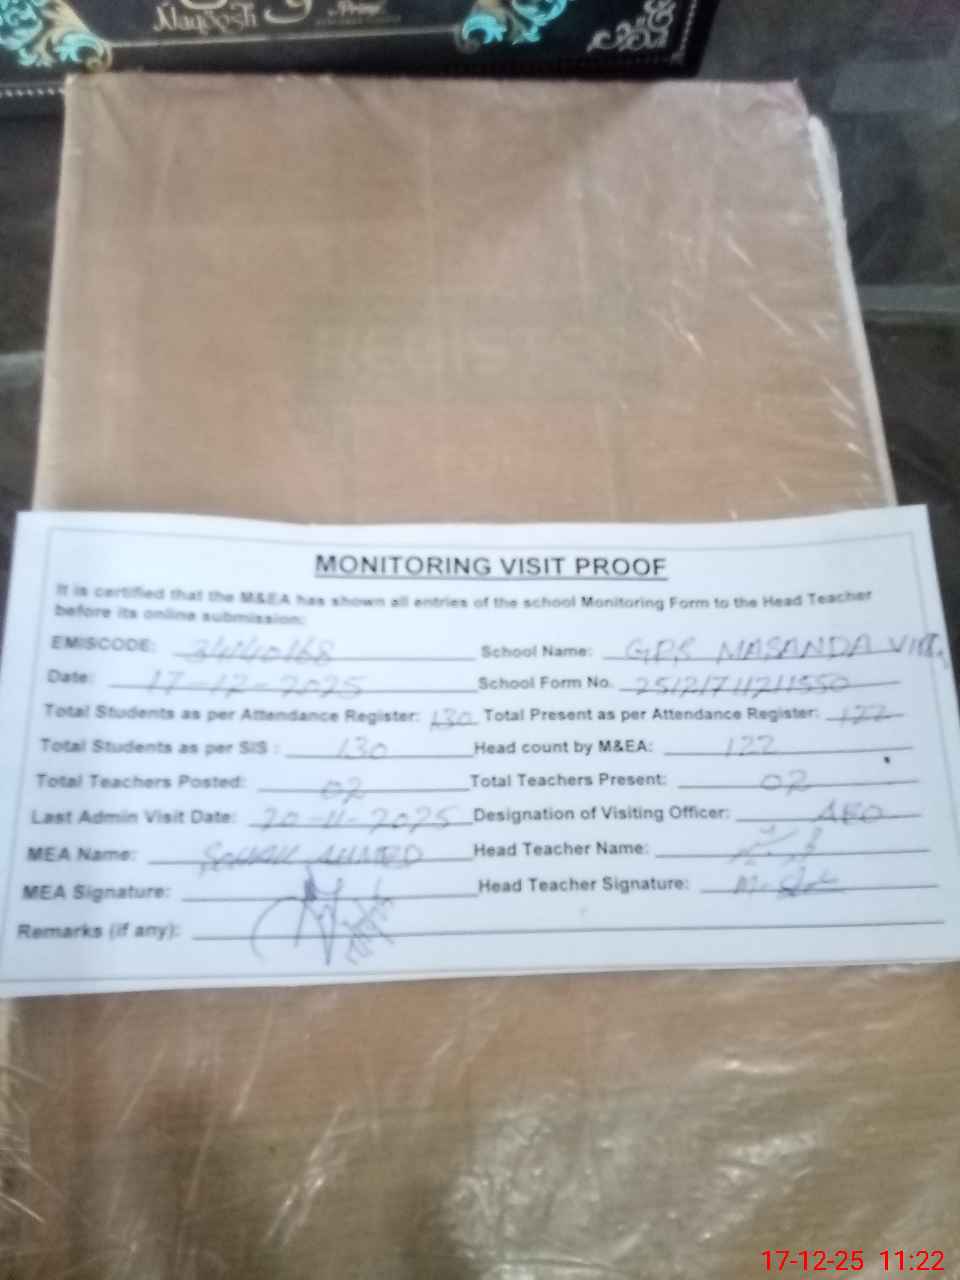 Naqoosh
REGISTER
MONITORING VISIT PROOF
It is certified that the M&EA has shown all entries of the school Monitoring Form to the Head Teacher
before its online submission:
EMISCODE: 34440168 School Name: GPS MASANDA
Date: 17-12-2025 School Form No. 25121711211550
Total Students as per Attendance Register: 130 Total Present as per Attendance Register: 122
Total Students as per SIS : 130 Head count by M&EA: 122
Total Teachers Posted: 02 Total Teachers Present: 02
Last Admin Visit Date: 20-11-2025 Designation of Visiting Officer: AEO
MEA Name: SOHAIL AHMED Head Teacher Name:
MEA Signature: Head Teacher Signature:
Remarks (if any):
17-12-25 11:22